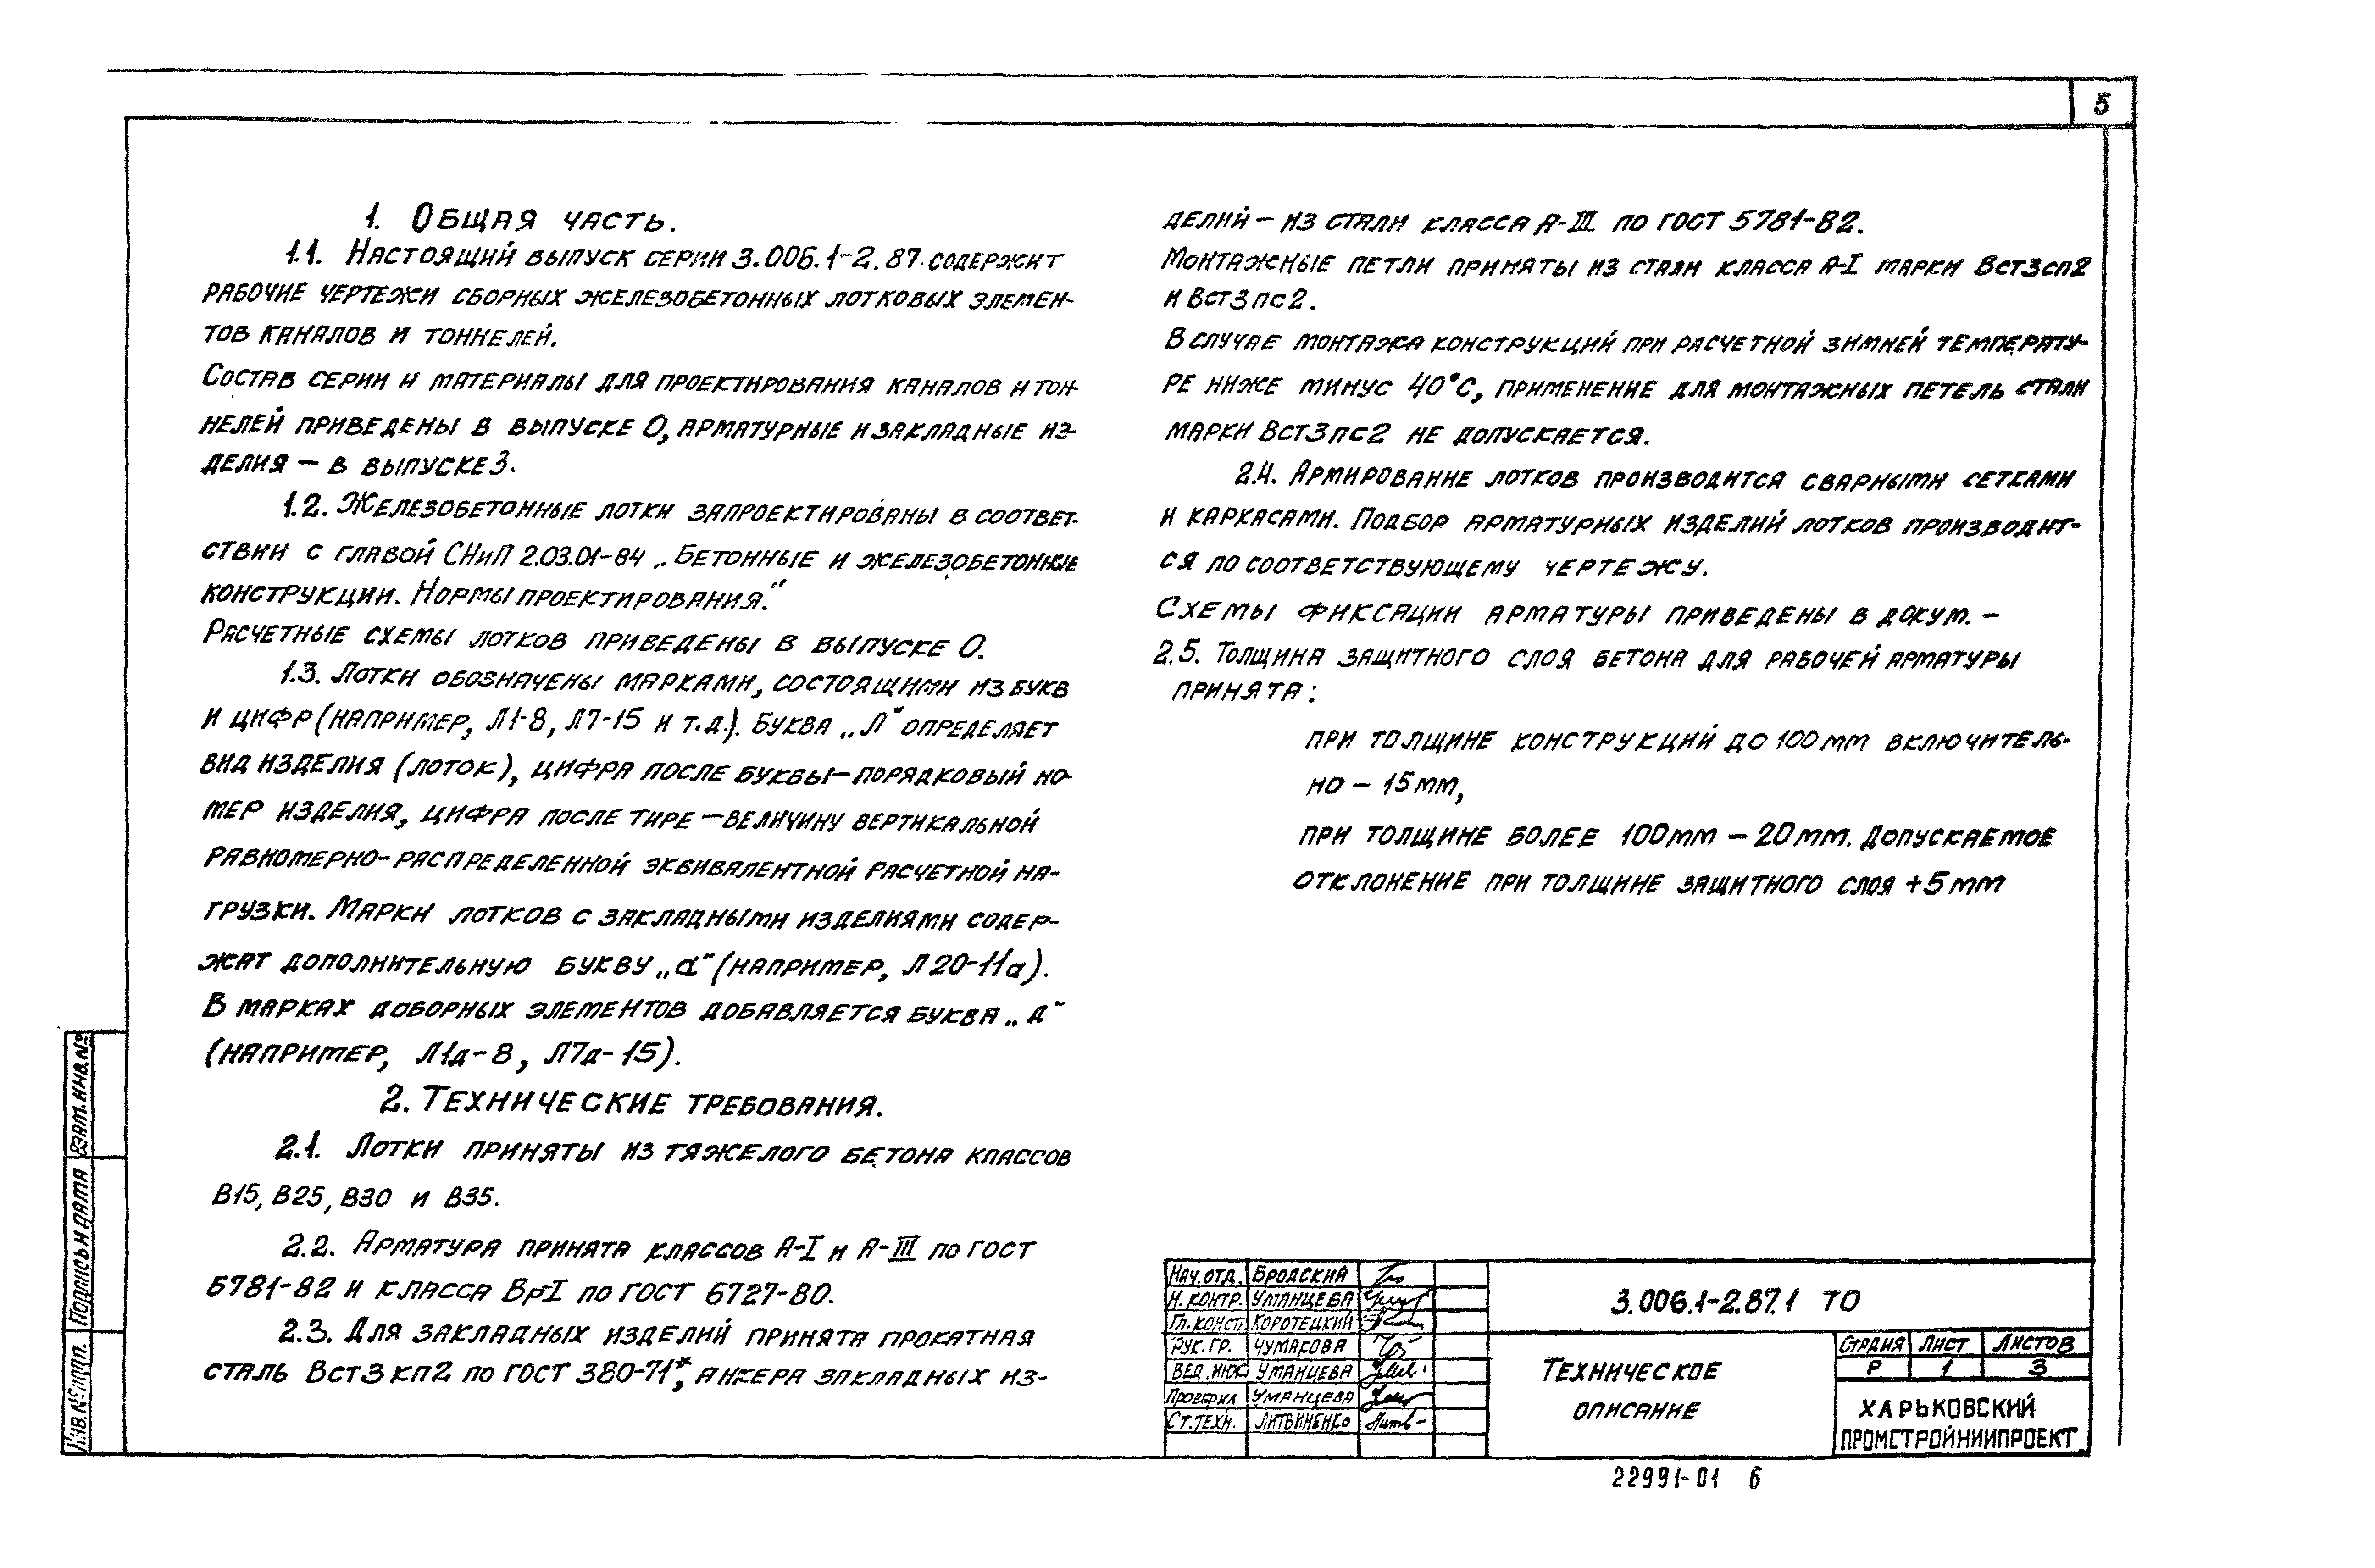 5
1. Общая часть.
1.1. Настоящий выпуск серии 3.006.1-2.87. содержит
рабочие чертежи сборных железобетонных лотковых элемен-
тов каналов и тоннелей.
Состав серии и материалы для проектирования каналов и тон-
нелей приведены в выпуске 0, арматурные и закладные из-
делия – в выпуске 3.
1.2. Железобетонные лотки запроектированы в соответ-
ствии с главой СНиП 2.03.01-84 „Бетонные и железобетонные
конструкции. Нормы проектирования."
Расчетные схемы лотков приведены в выпуске 0.
1.3. Лотки обозначены марками, состоящими из букв
и цифр (например, Л1-8, Л7-15 и т.д.). Буква „Л" определяет
вид изделия (лоток), цифра после буквы – порядковый но-
мер изделия, цифра после тире – величину вертикальной
равномерно-распределенной эквивалентной расчетной на-
грузки. Марки лотков с закладными изделиями содер-
жат дополнительную букву „а" (например, Л20-11а).
В марках доборных элементов добавляется буква „д"
(например, Л1д-8, Л7д-15).
2. Технические требования.
2.1. Лотки приняты из тяжелого бетона классов
В15, В25, В30 и В35.
2.2. Арматура принята классов А-I и А-III по ГОСТ
5781-82 и класса ВрI по ГОСТ 6727-80.
2.3. Для закладных изделий принята прокатная
сталь Вст3кп2 по ГОСТ 380-71*, анкера закладных из-
делий – из стали класса А-III по ГОСТ 5781-82.
Монтажные петли приняты из стали класса А-I марки Вст3сп2
и Вст3пс2.
В случае монтажа конструкций при расчетной зимней температу-
ре ниже минус 40°С, применение для монтажных петель стали
марки Вст3пс2 не допускается.
2.4. Армирование лотков производится сварными сетками
и каркасами. Подбор арматурных изделий лотков производит-
ся по соответствующему чертежу.
Схемы фиксации арматуры приведены в докум. –
2.5. Толщина защитного слоя бетона для рабочей арматуры
принята:
при толщине конструкций до 100мм включитель-
но – 15мм,
при толщине более 100мм – 20мм. Допускаемое
отклонение при толщине защитного слоя +5мм
Взам. инв. №
Подпись и дата
Инв. № подл.
Нач. отд. Бродский
Н. контр. Уманцева
Гл. конст. Коротецкий
Рук. гр. Чумакова
Вед. инж. Уманцева
Проверил Уманцева
Ст. техн. Литвиненко
3.006.1-2.87.1 ТО
Техническое
описание
Стадия Лист Листов
Р 1 3
Харьковский
Промстройниипроект
22991-01 6